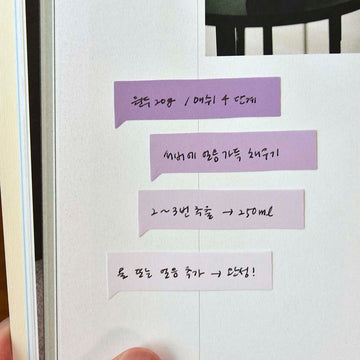 원두 20g / 매쉬 4 단계
서버에 얼음가득 채우기
2~3번 추출 → 250ml
물 또는 얼음 추가 → 완성!